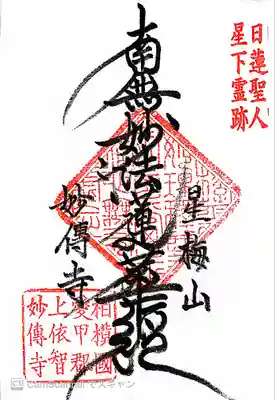 日蓮聖人
星下霊跡
南無妙法蓮華経
星梅山
妙傳寺
相模國
愛甲郡
上依智
妙傳寺
CamScannerでスキャン